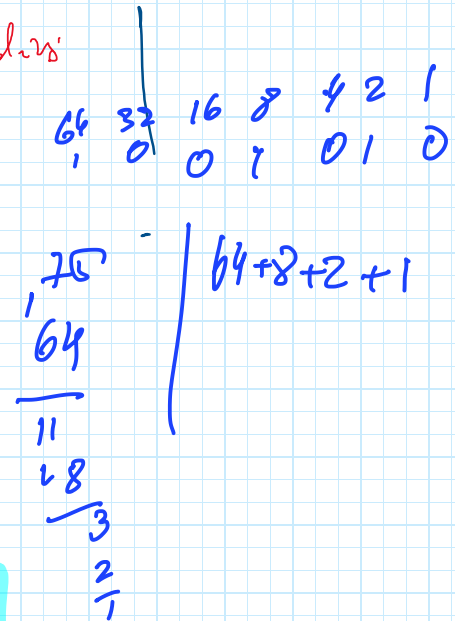 64 32 16 8 4 2 1
1 0 0 1 0 1 0
75
64
11
8
3
2
1
64+8+2+1